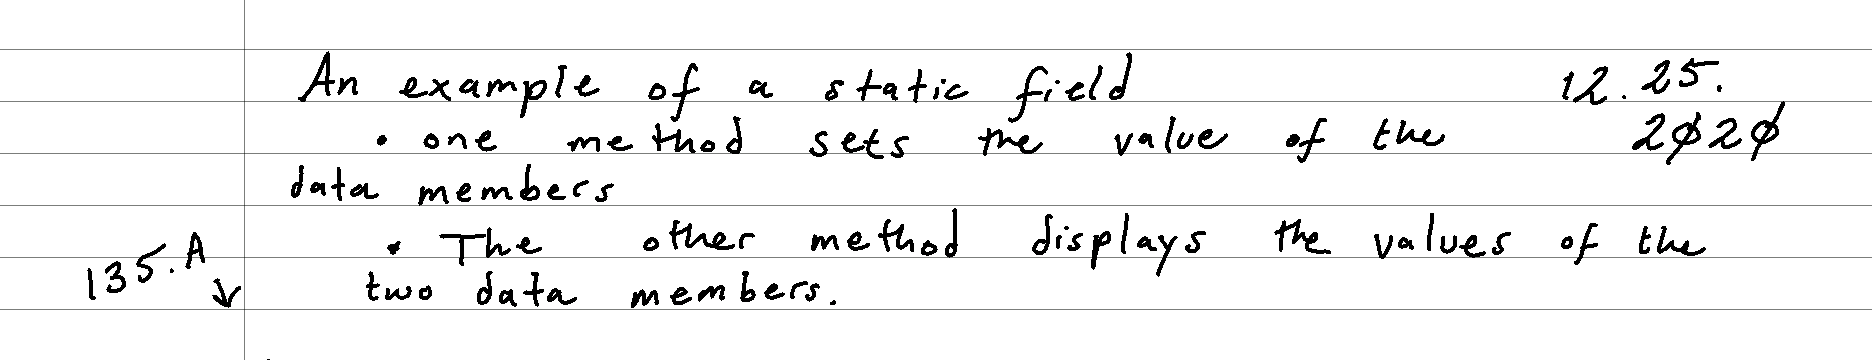 An example of a static field 12.25.
• one method sets the value of the 2020
data members
• The other method displays the values of the
135.A ↓ two data members.